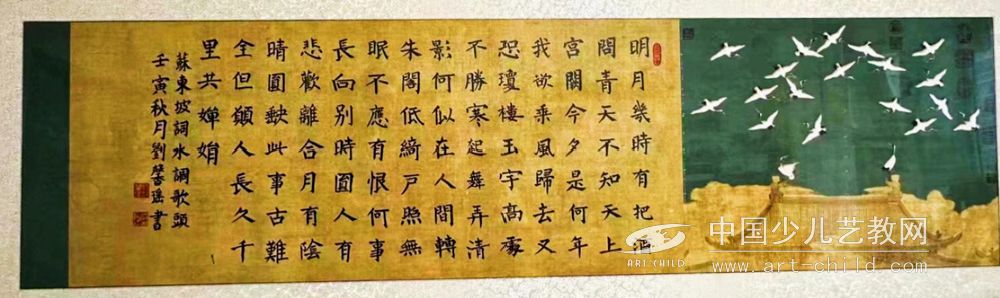 明月幾時有把酒
問青天不知天上
宮闕今夕是何年
我欲乘風歸去又
恐瓊樓玉宇高處
不勝寒起舞弄清
影何似在人間轉
朱閣低綺戶照無
眠不應有恨何事
長向别時圓人有
悲歡離合月有陰
晴圓缺此事古難
全但願人長久千
里共嬋娟
蘇東坡詞水調歌頭
壬寅秋月劉馨瑤書
ART CHILD
中国少儿艺教网
www.art-child.com